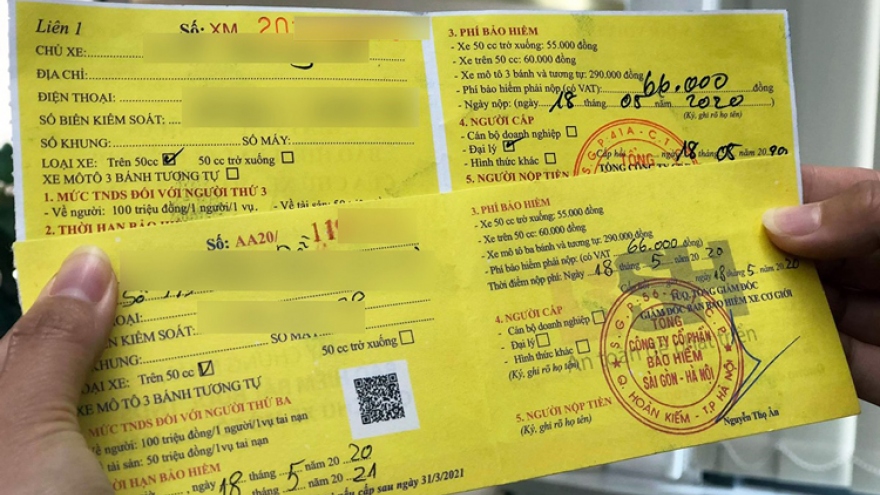 Liên 1
Số: XM 20
CHỦ XE:
ĐỊA CHỈ:
ĐIỆN THOẠI:
SỐ BIÊN KIỂM SOÁT:
SỐ KHUNG: SỐ MÁY:
LOẠI XE: Trên 50cc 50 cc trở xuống
XE MÔTÔ 3 BÁNH TƯƠNG TỰ
1. MỨC TNDS ĐỐI VỚI NGƯỜI THỨ 3
- Về người: 100 triệu đồng/1 người/1 vụ. - Về tài sản: 50
2. THỜI HẠN BẢO HIỂM
3. PHÍ BẢO HIỂM
- Xe 50 cc trở xuống: 55.000 đồng
- Xe trên 50 cc: 60.000 đồng
- Xe mô tô 3 bánh và tương tự: 290.000 đồng
- Phí bảo hiểm phải nộp (có VAT): 66.000 đồng
- Ngày nộp: (ngày 18 tháng 05 năm 2020)
4. NGƯỜI CẤP (Ký, ghi rõ họ tên)
- Cán bộ doanh nghiệp
- Đại lý
- Hình thức khác
ngày 18 tháng 05 năm 2020
5. NGƯỜI NỘP TIỀN
TỔNG
Số: AA20/ 11
THOẠI:
BIÊN KIỂM SOÁT:
KHUNG: SỐ MÁY
LOẠI XE: Trên 50 cc 50 cc trở xuống
XE MÔ TÔ 3 BÁNH TƯƠNG TỰ
MỨC TNDS ĐỐI VỚI NGƯỜI THỨ BA
Về người: 100 triệu đồng/1 người/1 vụ tai nạn
tài sản: 50 triệu đồng/1 vụ tai nạn
THỜI HẠN BẢO HIỂM
ngày 18 tháng 5 năm 20 20
20 21
cấp sau ngày 31/3/2021
3. PHÍ BẢO HIỂM
- Xe 50 cc trở xuống: 55.000 đồng
- Xe trên 50 cc: 60.000 đồng
- Xe mô tô ba bánh và tương tự: 290.000 đồng
- Phí bảo hiểm phải nộp: (có VAT 66.000 đồng)
Thời điểm nộp phí: Ngày 18 tháng 5 năm 20 20
ngày 18 tháng 5 năm 20 20
TUQ. TỔNG GIÁM ĐỐC
GIÁM ĐỐC BAN BẢO HIỂM XE CƠ GIỚI
4. NGƯỜI CẤP
- Cán bộ doanh nghiệp
- Đại lý
- Hình thức khác
(Ký, ghi rõ họ tên)
5. NGƯỜI NỘP TIỀN
(Ký, ghi rõ họ tên)
TỔNG
CÔNG TY CỔ PHẦN
BẢO HIỂM
SÀI GÒN - HÀ NỘI
Q. HOÀN KIẾM - T.P HÀ NỘI
Nguyễn Thọ Ân